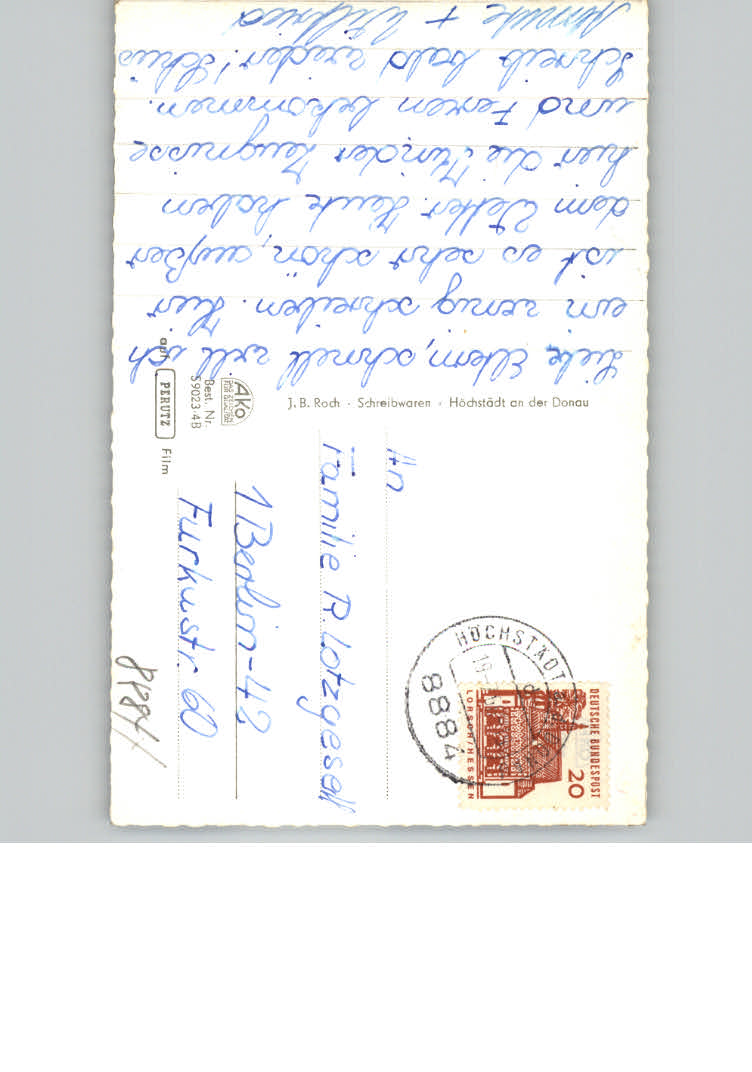 Liebe Eltern, schnell will ich
ein wenig schreiben. Hier
ist es sehr schön, außer
dem Wetter. Heute haben
hier die Kinder Zeugnisse
und Ferien bekommen.
Schreib bald wieder!
+ Wilfried
J. B. Roch - Schreibwaren - Höchstädt an der Donau
Ako
DAS ZEICHEN
FÜR QUALITÄT
Best. Nr.
S9023/4B
auf PERUTZ Film
An
Familie R. Lotzgesell
1 Berlin-42
Furkastr. 60
HÖCHSTÄDT
8884
DEUTSCHE BUNDESPOST
20
LORSCH/HESSEN
8884